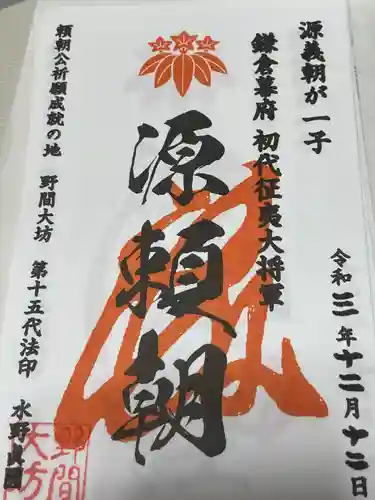 源義朝が一子
鎌倉幕府 初代征夷大将軍
源頼朝
頼朝公祈願成就の地 野間大坊 第十五代法印 水野真圓
令和三年十二月十二日
野間
大坊